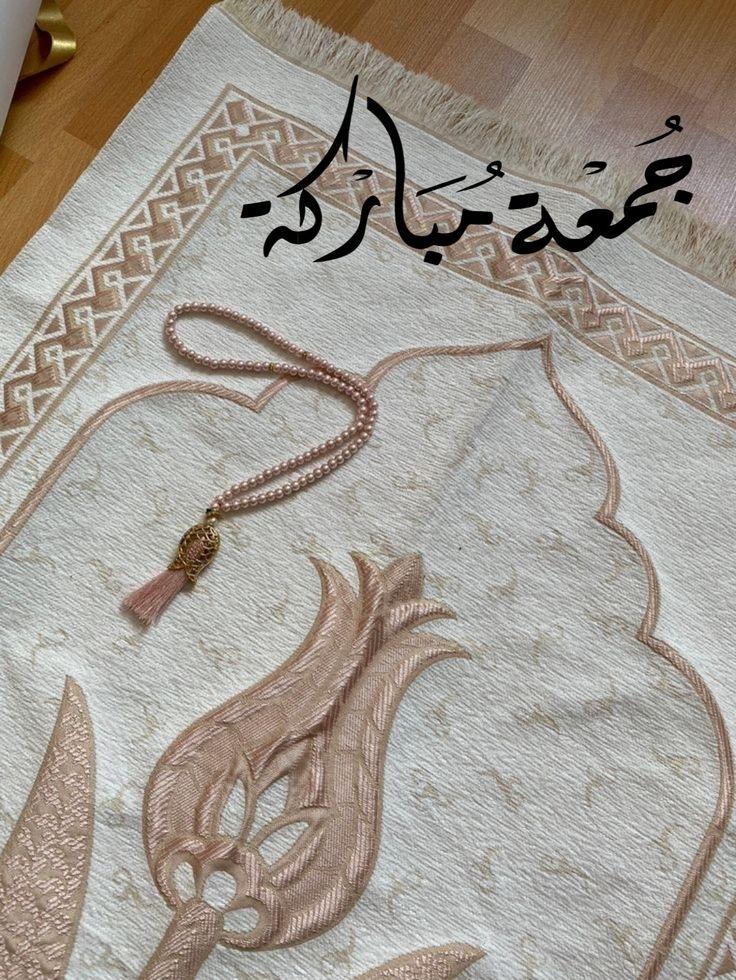 جُمْعَة مُبَارْكَة